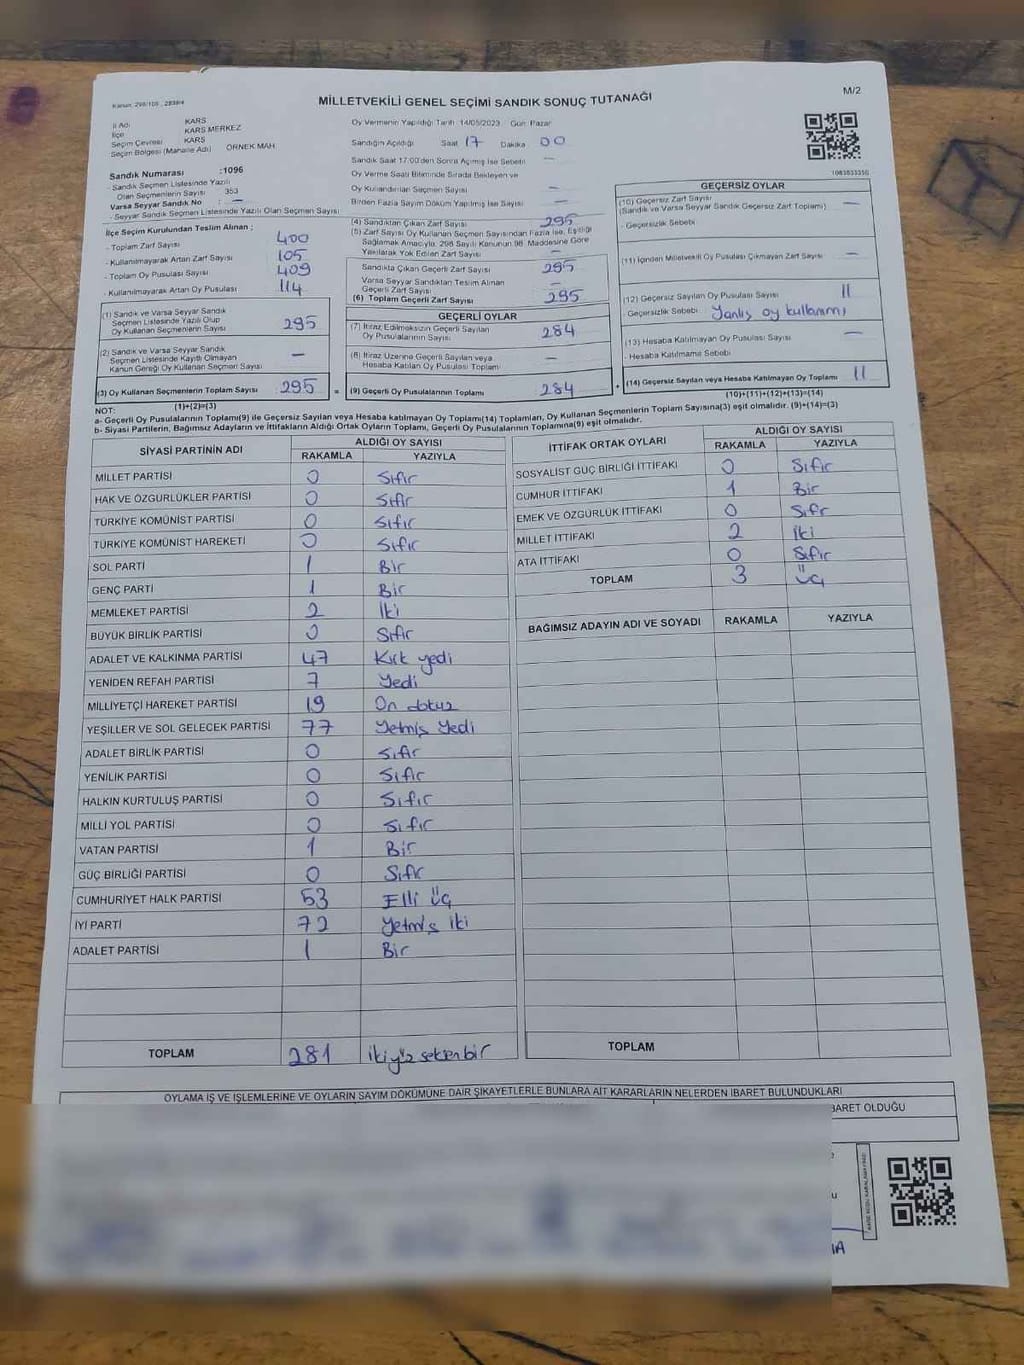 Kanun: 298/105 , 2839/4
MİLLETVEKİLİ GENEL SEÇİMİ SANDIK SONUÇ TUTANAĞI
M/2
İl Adı KARS
İlçe KARS MERKEZ
Seçim Çevresi KARS
Seçim Bölgesi (Mahalle Adı) ÖRNEK MAH.
Sandık Numarası :1096
- Sandık Seçmen Listesinde Yazılı
Olan Seçmenlerin Sayısı 353
Varsa Seyyar Sandık No : —
- Seyyar Sandık Seçmen Listesinde Yazılı Olan Seçmen Sayısı
İlçe Seçim Kurulundan Teslim Alınan ;
- Toplam Zarf Sayısı 400
- Kullanılmayarak Artan Zarf Sayısı 105
- Toplam Oy Pusulası Sayısı 409
- Kullanılmayarak Artan Oy Pusulası 114
(1) Sandık ve Varsa Seyyar Sandık
Seçmen Listesinde Yazılı Olup
Oy Kullanan Seçmenlerin Sayısı 295
(2) Sandık ve Varsa Seyyar Sandık
Seçmen Listesinde Kayıtlı Olmayan
Kanun Gereği Oy Kullanan Seçmen Sayısı —
(3) Oy Kullanan Seçmenlerin Toplam Sayısı 295 =
(1)+(2)=(3)
Oy Vermenin Yapıldığı Tarih 14/05/2023 Gün Pazar
Sandığın Açıldığı Saat 17 Dakika 00
Sandık Saat 17:00'den Sonra Açılmış İse Sebebi —
Oy Verme Saati Bitiminde Sırada Bekleyen ve
Oy Kullandırılan Seçmen Sayısı —
Birden Fazla Sayım Döküm Yapılmış İse Sayısı —
(4) Sandıktan Çıkan Zarf Sayısı 295
(5) Zarf Sayısı Oy Kullanan Seçmen Sayısından Fazla İse, Eşitliği
Sağlamak Amacıyla, 298 Sayılı Kanunun 98. Maddesine Göre
Yakılarak Yok Edilen Zarf Sayısı —
Sandıkta Çıkan Geçerli Zarf Sayısı 295
Varsa Seyyar Sandıktan Teslim Alınan
Geçerli Zarf Sayısı —
(6) Toplam Geçerli Zarf Sayısı 295
GEÇERLİ OYLAR
(7) İtiraz Edilmeksizin Geçerli Sayılan
Oy Pusulalarının Sayısı 284
(8) İtiraz Üzerine Geçerli Sayılan veya
Hesaba Katılan Oy Pusulası Toplamı —
(9) Geçerli Oy Pusulalarının Toplamı 284 +
GEÇERSİZ OYLAR
(10) Geçersiz Zarf Sayısı
(Sandık ve Varsa Seyyar Sandık Geçersiz Zarf Toplamı) —
- Geçersizlik Sebebi
(11) İçinden Milletvekili Oy Pusulası Çıkmayan Zarf Sayısı —
(12) Geçersiz Sayılan Oy Pusulası Sayısı 11
- Geçersizlik Sebebi Yanlış oy kullanımı
(13) Hesaba Katılmayan Oy Pusulası Sayısı —
- Hesaba Katılmama Sebebi
(14) Geçersiz Sayılan veya Hesaba Katılmayan Oy Toplamı 11
(10)+(11)+(12)+(13)=(14)
NOT:
a- Geçerli Oy Pusulalarının Toplamı(9) ile Geçersiz Sayılan veya Hesaba katılmayan Oy Toplamı(14) Toplamları, Oy Kullanan Seçmenlerin Toplam Sayısına(3) eşit olmalıdır. (9)+(14)=(3)
b- Siyasi Partilerin, Bağımsız Adayların ve İttifakların Aldığı Ortak Oyların Toplamı, Geçerli Oy Pusulalarının Toplamına(9) eşit olmalıdır.
SİYASİ PARTİNİN ADI ALDIĞI OY SAYISI
RAKAMLA YAZIYLA
MİLLET PARTİSİ 0 Sıfır
HAK VE ÖZGÜRLÜKLER PARTİSİ 0 Sıfır
TÜRKİYE KOMÜNİST PARTİSİ 0 Sıfır
TÜRKİYE KOMÜNİST HAREKETİ 0 Sıfır
SOL PARTİ 1 Bir
GENÇ PARTİ 1 Bir
MEMLEKET PARTİSİ 2 İki
BÜYÜK BİRLİK PARTİSİ 0 Sıfır
ADALET VE KALKINMA PARTİSİ 47 Kırk yedi
YENİDEN REFAH PARTİSİ 7 Yedi
MİLLİYETÇİ HAREKET PARTİSİ 19 On dokuz
YEŞİLLER VE SOL GELECEK PARTİSİ 77 Yetmiş Yedi
ADALET BİRLİK PARTİSİ 0 Sıfır
YENİLİK PARTİSİ 0 Sıfır
HALKIN KURTULUŞ PARTİSİ 0 Sıfır
MİLLİ YOL PARTİSİ 0 Sıfır
VATAN PARTİSİ 1 Bir
GÜÇ BİRLİĞİ PARTİSİ 0 Sıfır
CUMHURİYET HALK PARTİSİ 53 Elli üç
İYİ PARTİ 72 Yetmiş iki
ADALET PARTİSİ 1 Bir
TOPLAM 281 ikiyüz seksenbir
İTTİFAK ORTAK OYLARI ALDIĞI OY SAYISI
RAKAMLA YAZIYLA
SOSYALİST GÜÇ BİRLİĞİ İTTİFAKI 0 Sıfır
CUMHUR İTTİFAKI 1 Bir
EMEK VE ÖZGÜRLÜK İTTİFAKI 0 Sıfr
MİLLET İTTİFAKI 2 İki
ATA İTTİFAKI 0 Sıfır
TOPLAM 3 Üç
BAĞIMSIZ ADAYIN ADI VE SOYADI RAKAMLA YAZIYLA
TOPLAM
OYLAMA İŞ VE İŞLEMLERİNE VE OYLARIN SAYIM DÖKÜMÜNE DAİR ŞİKAYETLERLE BUNLARA AİT KARARLARIN NELERDEN İBARET BULUNDUKLARI
BARET OLDUĞU